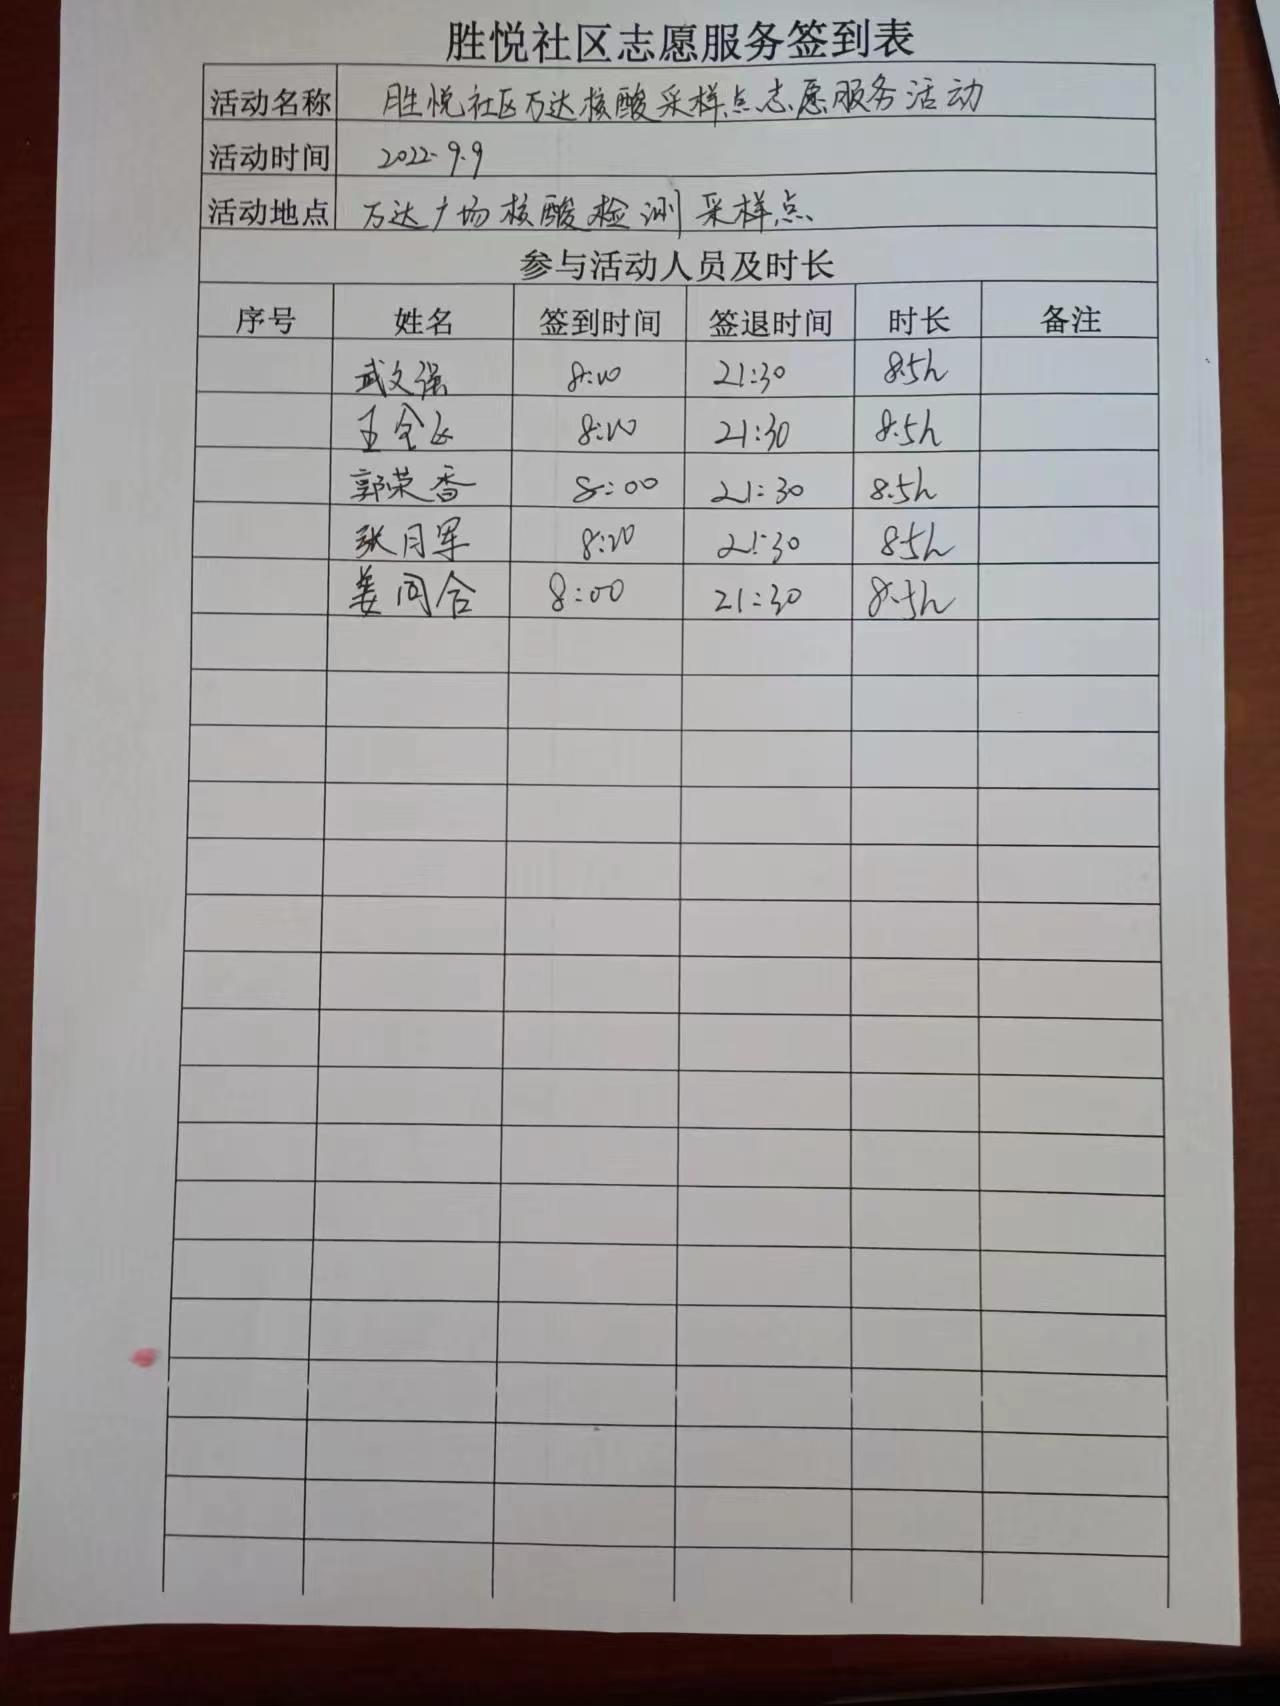 胜悦社区志愿服务签到表
活动名称 胜悦社区万达核酸采样点志愿服务活动
活动时间 2022.9.9
活动地点 万达广场核酸检测采样点
参与活动人员及时长
序号 姓名 签到时间 签退时间 时长 备注
武文强 8:00 21:30 8.5h
王全 8:00 21:30 8.5h
郭荣香 8:00 21:30 8.5h
张月军 8:00 21:30 8.5h
姜同合 8:00 21:30 8.5h